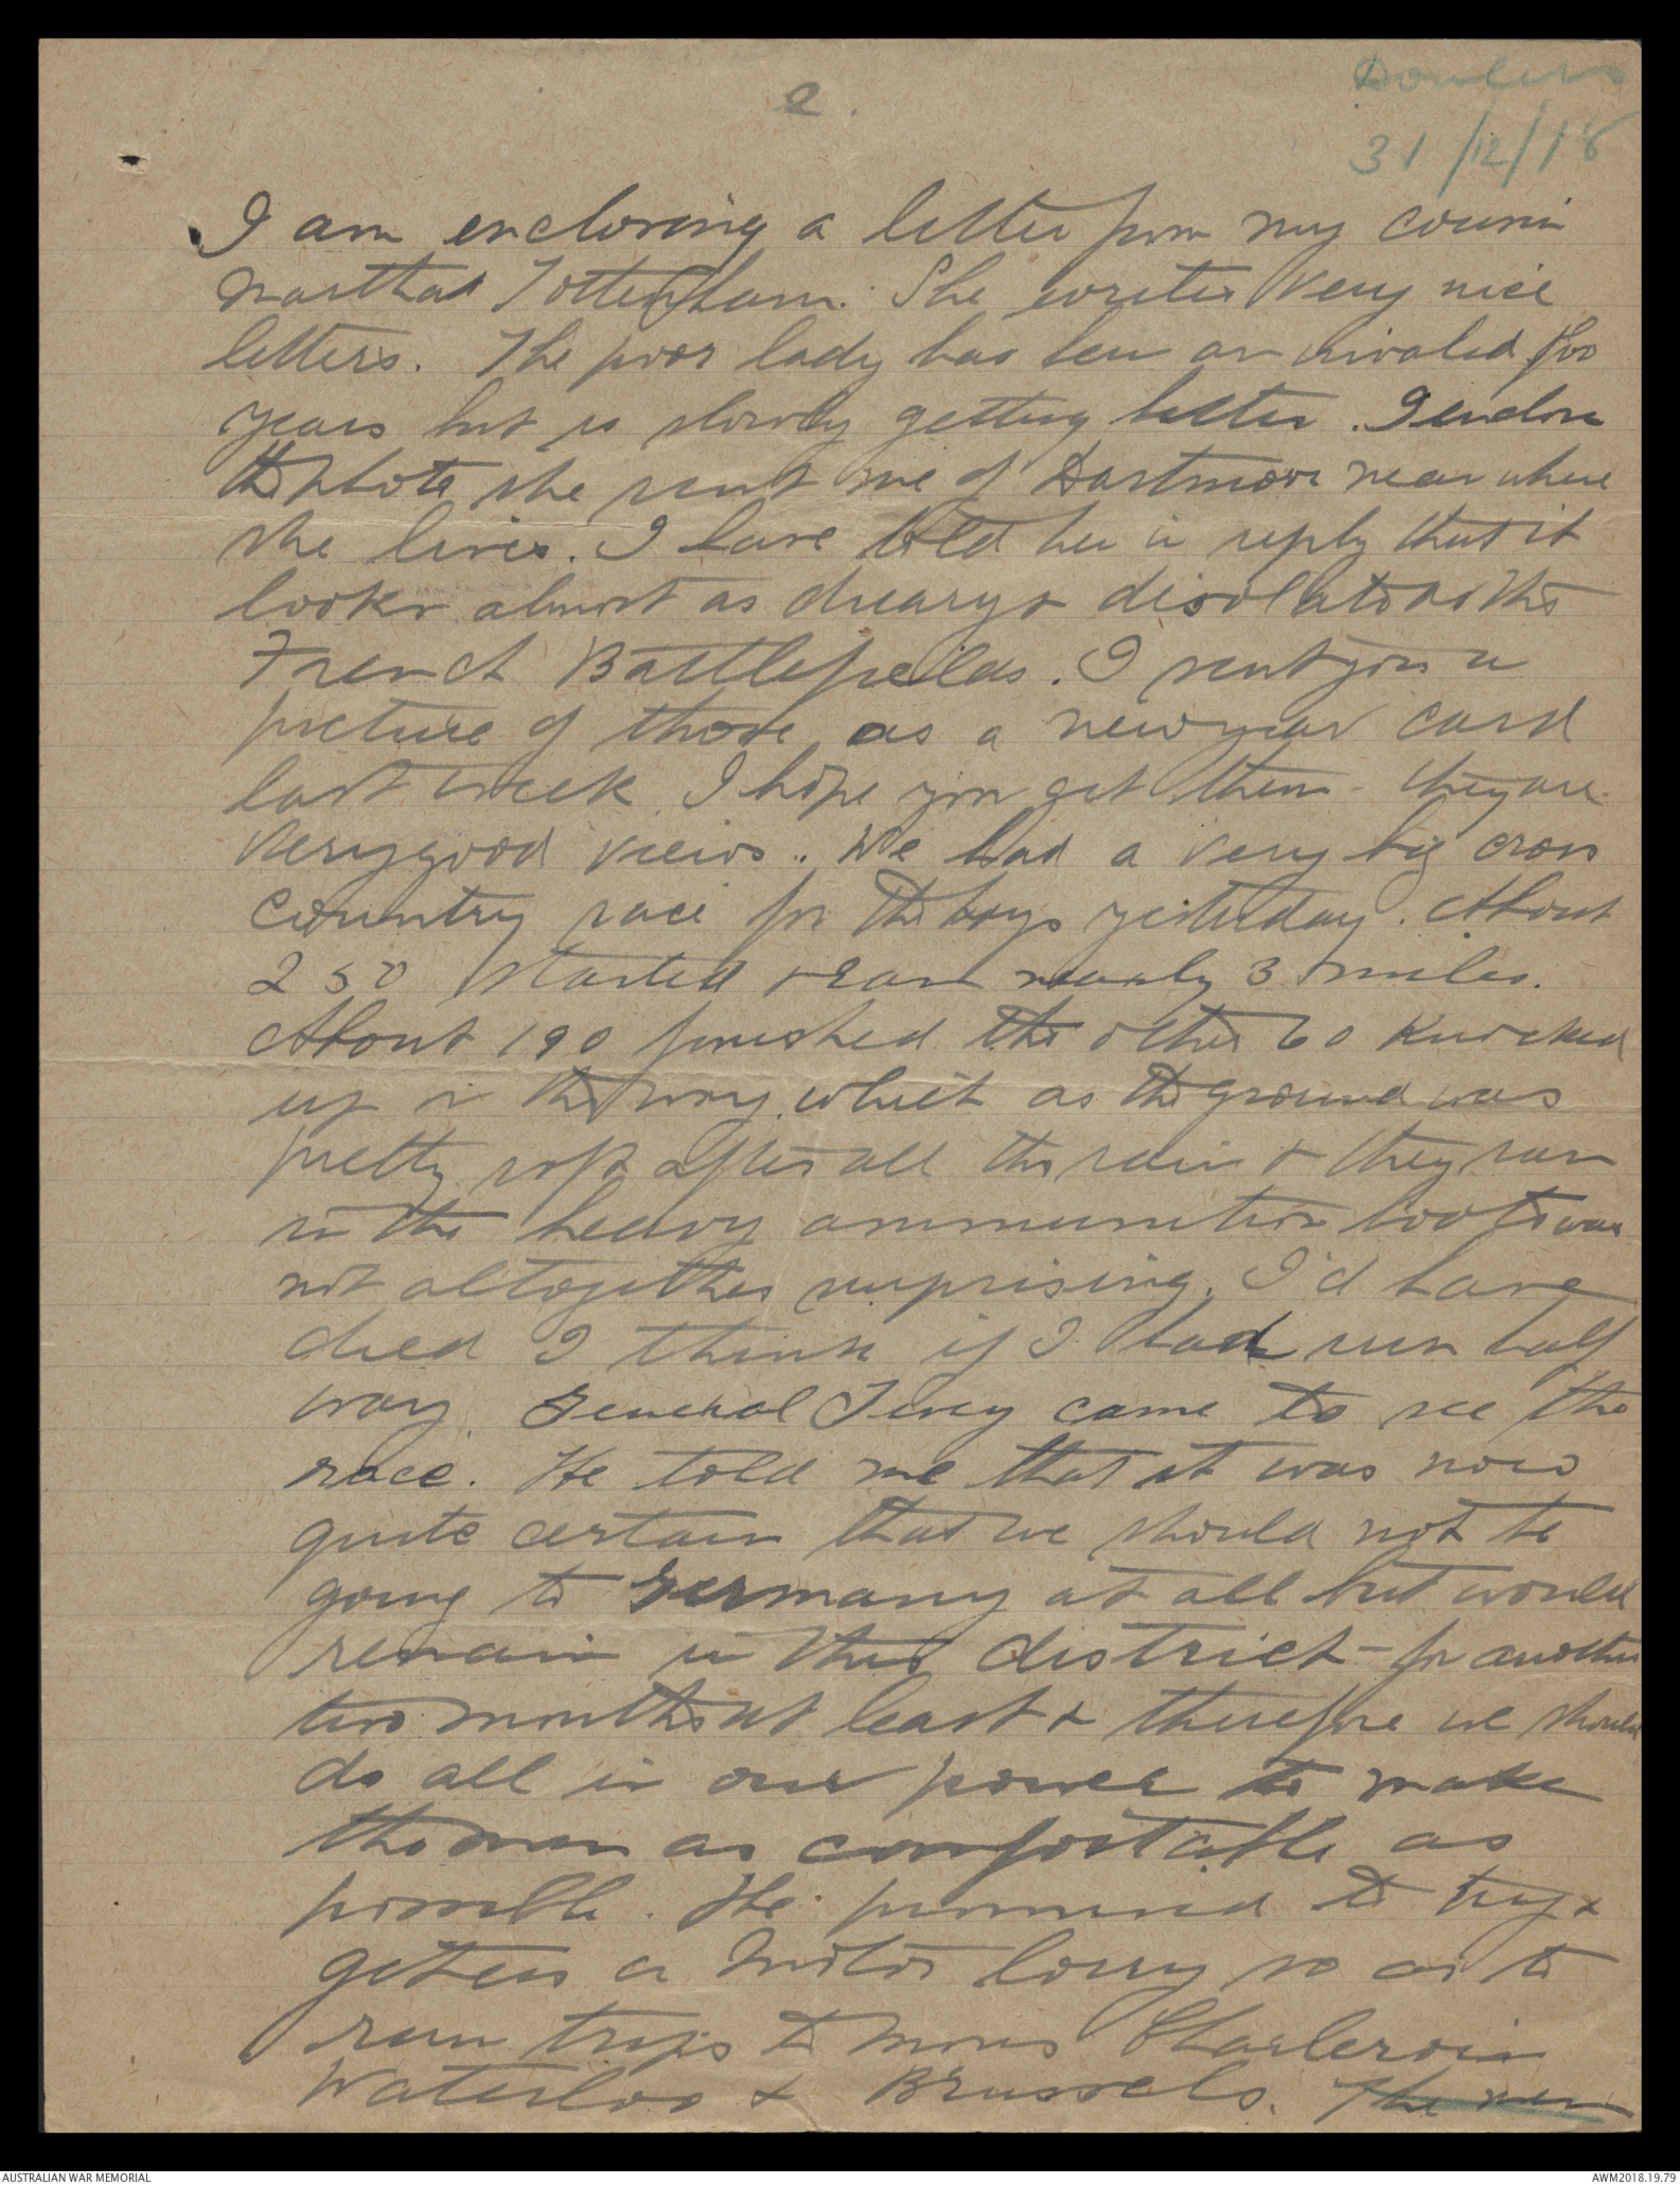 2.
Doulers
31/12/18
I am enclosing a letter from my cousin
Martha Tottenham. She writes very nice
letters. The poor lady has been an invalid for
years but is slowly getting better. I enclose
the photo she sent me of Dartmoor near where
she lives. I have told her in reply that it
looks almost as dreary & desolate as the
French Battlefields. I sent you a
picture of those as a new year card
last week I hope you get them - they are
very good views. We had a very big cross
country race for the boys yesterday. About
250 started & ran nearly 3 miles.
About 190 finished the other 60 knocked
up on the way which as the ground was
pretty soft after all the rain & they ran
in the heavy ammunition boots was
not altogether surprising. I'd have
died I think if I had run half
way. General Tivey came to see the
race. He told me that it was now
quite certain that we should not be
going to Germany at all but would
remain in this district - for another
two months at least & therefore we should
do all in our power to make
the men as comfortable as
possible. He promised to try &
get us a motor lorry so as to
run trips to Mons Charleroi
Waterloo & Brussels. The men
AUSTRALIAN WAR MEMORIAL
AWM2018.19.79